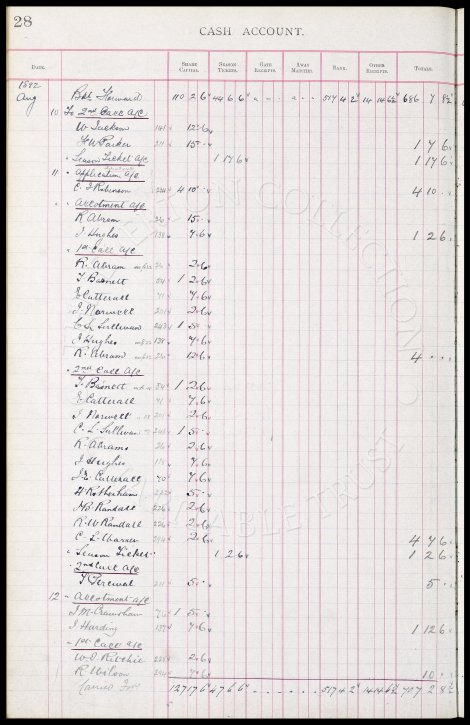 28
CASH ACCOUNT.
DATE. SHARE CAPITAL. SEASON TICKETS. GATE RECEIPTS. AWAY MATCHES. BANK. OTHER RECEIPTS. TOTALS.
1892
Aug Bot Forward 110 2 6 44 6 6 517 4 2 14 14 6½ 686 7 8½
10 To 2nd Call a/c
W Jackson 12 6
W Parker 211 15 1 7 6
" Season Ticket a/c 1 17 6 1 17 6
11 " Application a/c
C. J Robinson 4 10 4 10
" Allotment a/c
R Abram 26 15
J Hughes 138 7 6 1 2 6
" 1st Call a/c
R. Abram 26 2 6
T Barnett 1 2 6
E Catterall 41 7 6
J. Norwell 201 2 6
C L Sullivan 243 1 5
J Hughes 138 7 6
R. Abram 26 12 6 4
" 2nd Call a/c
T. Barnett 1 2 6
E Catterall 41 7 6
J Norwell 201 2 6
C. L Sullivan 243 1 5
R. Abrams 26 2 6
J Hughes 138 7 6
J. E. Catterall 40 7 6
H Rotherham 5
Randall 226 2 6
R. W Randall 226 2 6
C. L. Warner 2 6 4 7 6
" Season Ticket 1 2 6 1 2 6
" 2nd Call a/c
T Percival 211 5 5
12 " Allotment a/c
J. M. Crawshaw 76 1 5
J Harding 137 7 6 1 12 6
" 1st Call a/c
W. J. Ritchie 228 2 6
R Wilson 7 6 10
Carried For 127 17 6 47 6 6 517 4 2 14 14 6½ 707 2 8½
EVERTON COLLECTION CHARITABLE TRUST